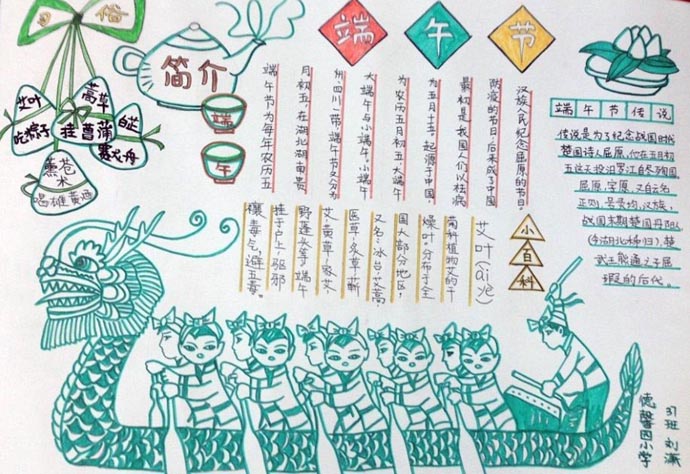 俗
艾叶
蒿草
白芷
吃粽子
挂菖蒲
赛龙舟
熏苍术
喝雄黄酒
简介
端
午
端午节
端午节为每年农历五
月初五,在湖北湖南贵
州、四川一带端午节又分为
大端午与小端午。小端午
为农历五月初五,大端午
为五月十五,起源于中国,
最初是我国人们以祛病
防疫的节日,后来成了中国
汉族人民纪念屈原的节日。
小百科
艾叶(ài yè)
菊科植物艾的干
燥叶,分布于全
国大部分地区,
又名:冰台、艾蒿、
医草、灸草、蕲
艾、黄草、家艾、
野莲头等,端午
挂于户上,驱邪
禳毒气,避五毒。
端午节传说
传说是为了纪念战国时代
楚国诗人屈原,他在五月初
五这天投汨罗江自尽殉国
屈原,字原,又自云名
正则,号灵均,汉族,
战国末期楚国丹阳人
(今湖北秭归),楚
武王熊通之子屈
瑕的后代。
31班 刘
德馨园小学